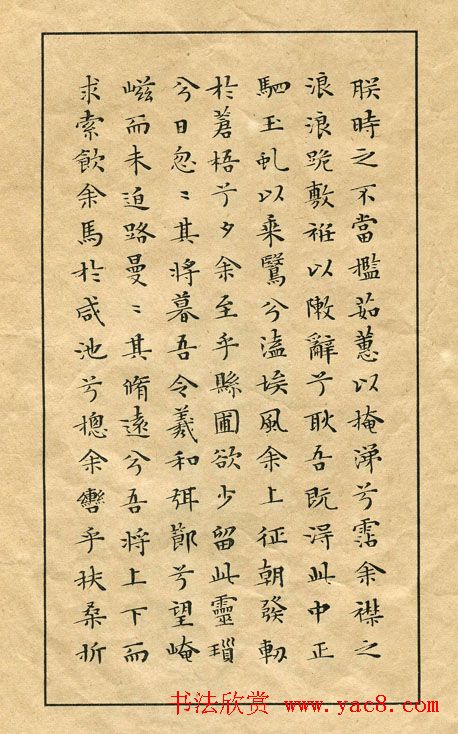 朕時之不當檻茹蕙以掩涕兮霑余襟之
浪浪跪敷衽以陳辭兮耿吾既得此中正
駟玉虬以乘鷖兮溘埃風余上征朝發軔
於蒼梧兮夕余至乎縣圃欲少留此靈瑣
兮日忽〻其將暮吾令羲和弭節兮望崦
嵫而未迫路曼〻其脩遠兮吾將上下而
求索飲余馬於咸池兮摠余轡乎扶桑折
书法欣赏 www.yac8.com